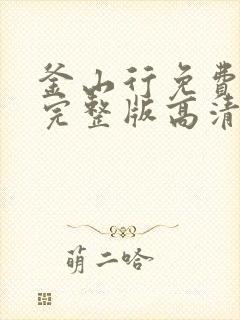 釜山行免費
完整版高清
萌二哈